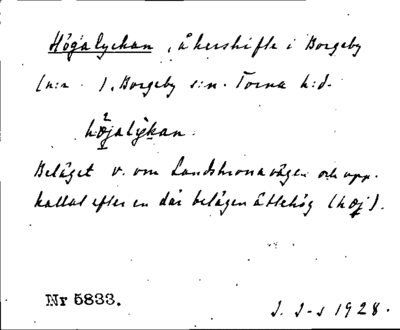 Högalyckan, åkerskifte i Borgeby
(n:r ), Borgeby s:n. Torna h:d.
højalykan.
Beläget v. om Landskronavägen och upp-
kallat efter en där belägen ättehög (høj).
Nr 5833.
1928.